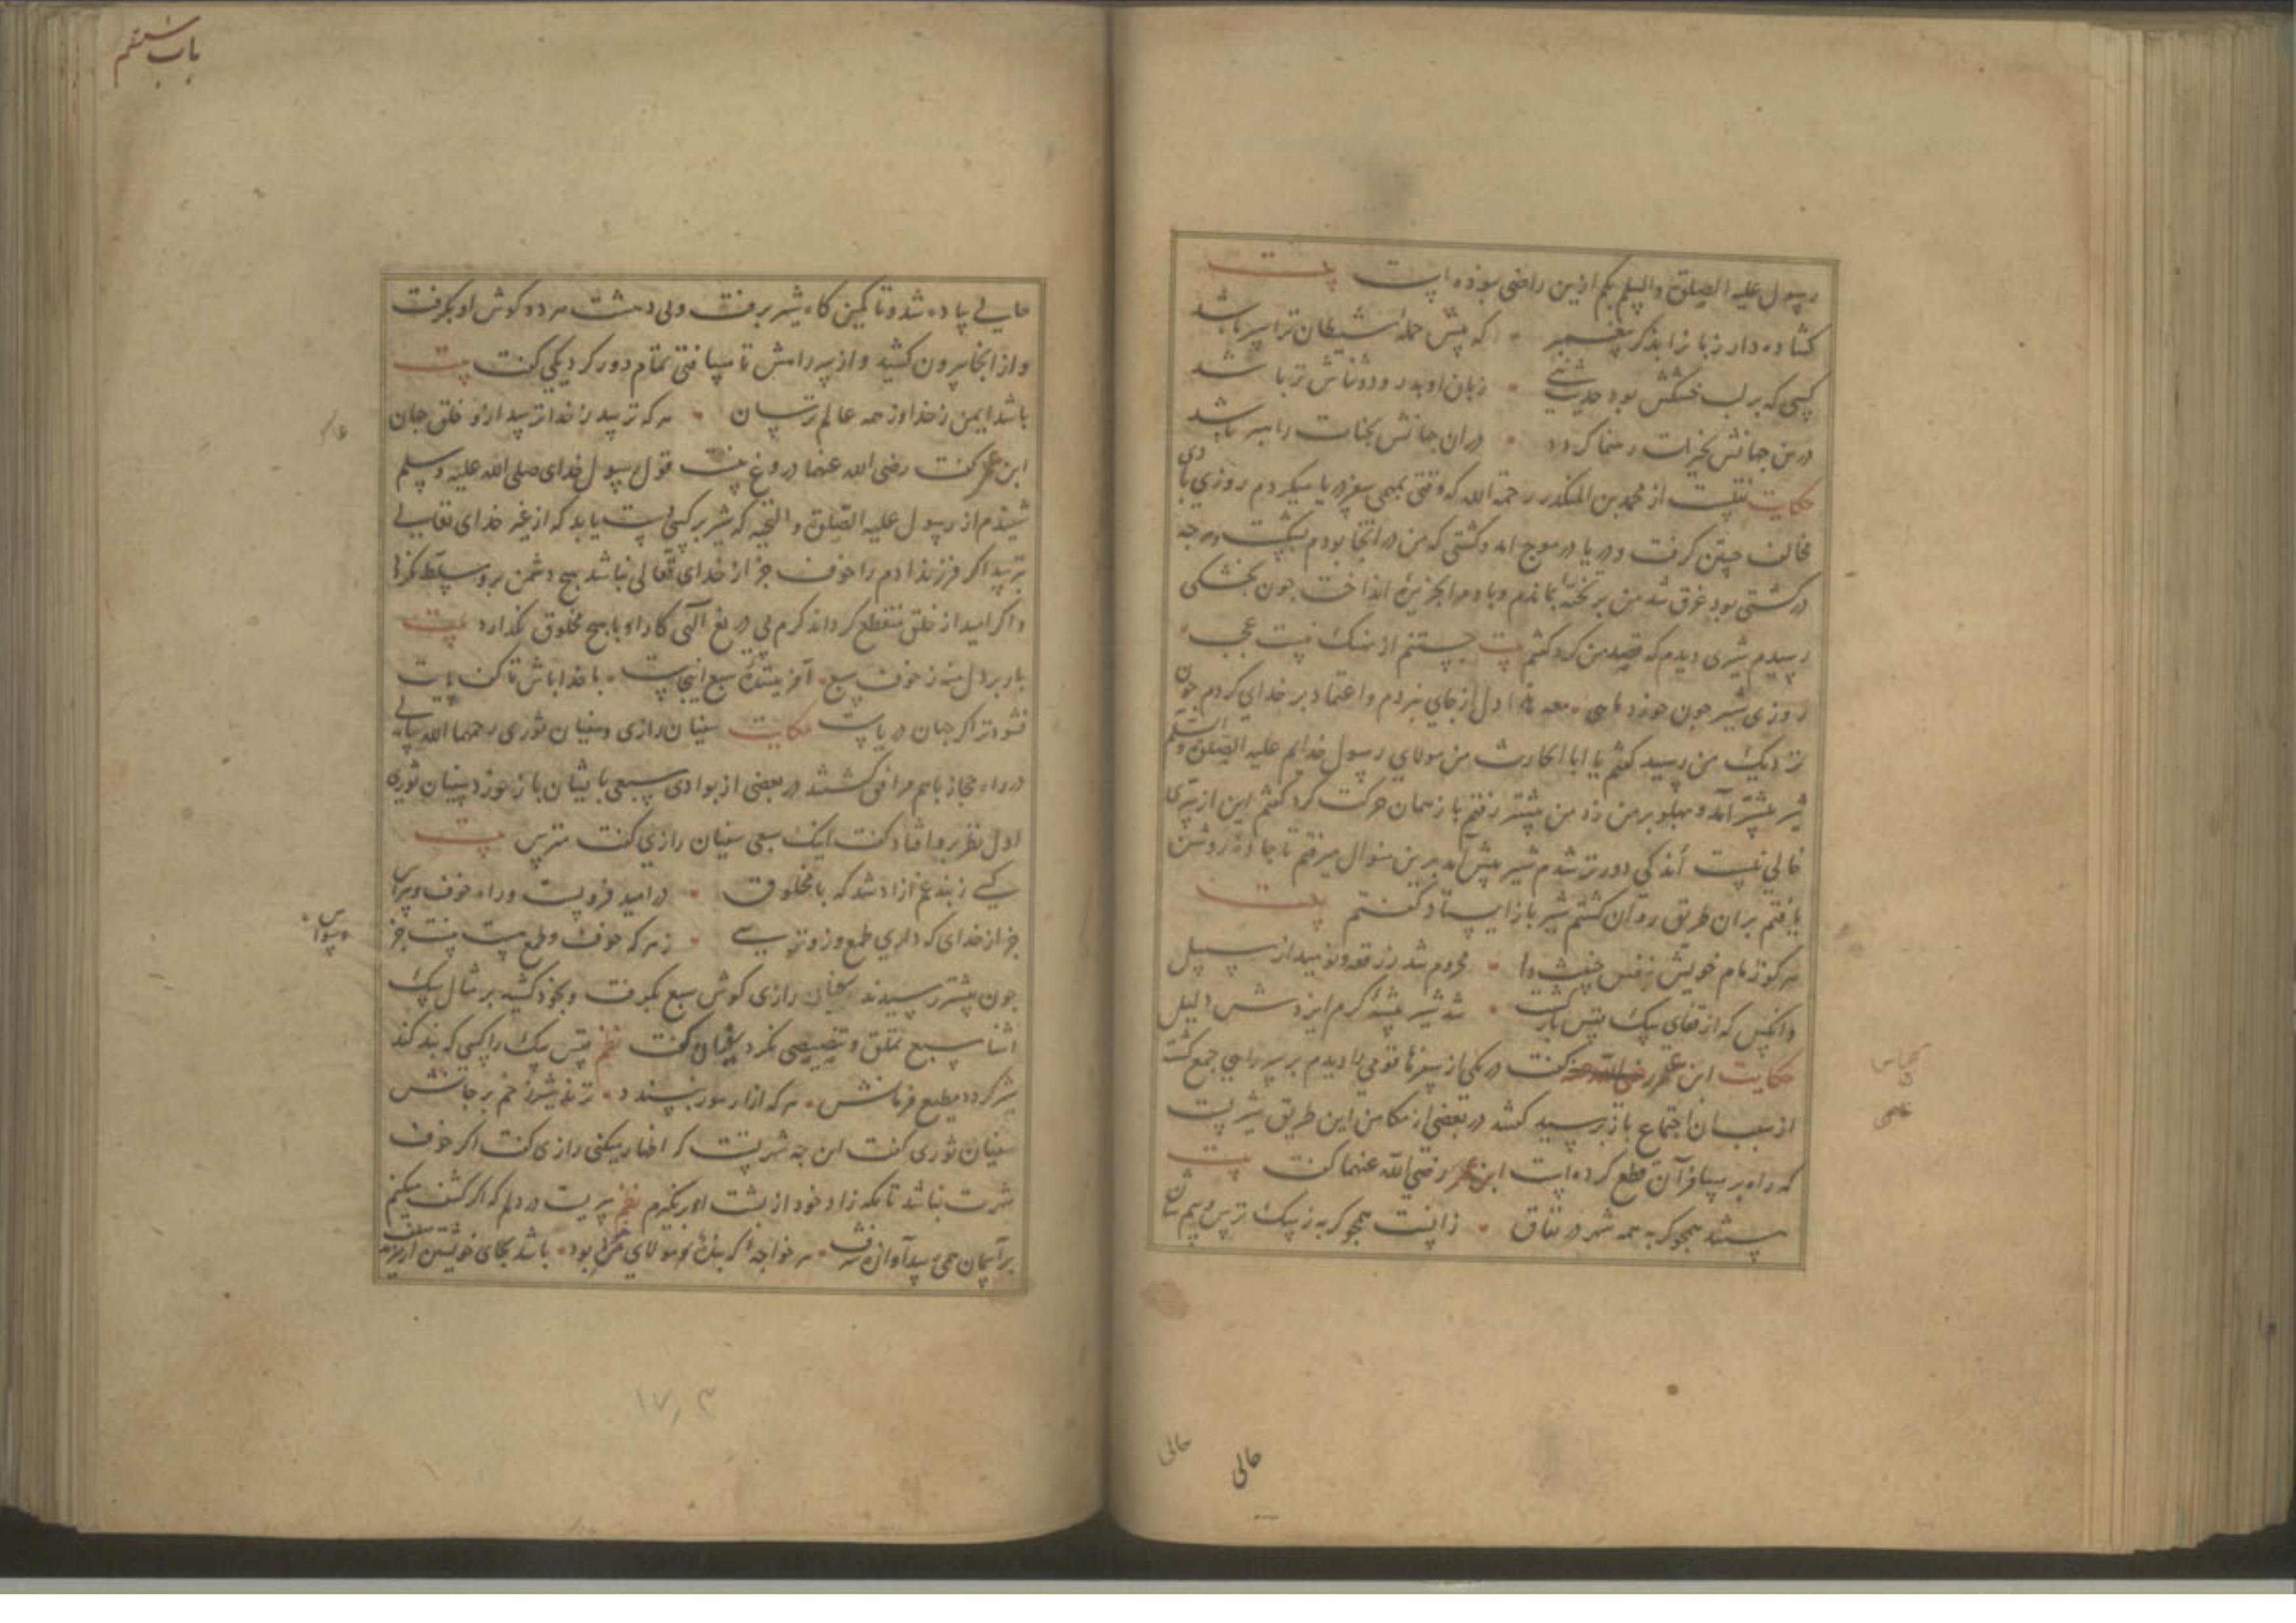 رسول علیه الصلوة والسلم بکم ازین راضی بوده است بیت
کشاده دار زبانرا بذکر پیغمبر که پیش حملهٔ شیطان ترا سپر باشد
کسی که بر لب خشکش بود حدیث نبی زبان او بدرود و ثناش تر باشد
درین جهانش بخیرات رهنما کردد دران جهانش بجنات راهبر باشد
حکایت نقلست از محمد بن المنکدر رحمة الله که وقتی بمهمی سفر دریا میکردم روزی بادی
مخالف جستن کرفت و دریا در موج امد و کشتی که من در انجا بودم بشکست و هرچه
در کشتی بود غرق شد من بر تختهٔ بماندم و باد مرا بجزیرهٔ انداخت چون بخشکی
رسیدم شیری دیدم که قصد من کرد کفتم بیت جستنم از نهنک نیست عجب
روزی شیر چون خورد ماهی اول از جای نبردم و اعتماد بر خدای کردم چون
نزدیک من رسید کفتم یا ابا الحارث من مولای رسول خدایم علیه الصلوة والسلم
شیر پیشتر آمد و پهلو بر من زد من پیشتر رفتم باز همان حرکت کرد کفتم این از سری
خالی نیست اندکی دورتر شدم شیر پیش آمد برین منوال میرفتم تا جادهٔ روشن
یافتم بران طریق روان کشتم شیر باز ایستاد کفتم بیت
هر کو زمام خویش بنفس خبیث داد محروم شد ز رفقه و نومید از سبیل
وانکس که از قفای سک نفس بازکشت شد شیر بیشهٔ کرم ایزدش دلیل
حکایت ابن عمر رضی الله عنه کفت در یکی از سفرها قومی را دیدم بر سر راهی جمع کشته
از سبب ان اجتماع باز پرسید کفتند در بعضی از مکامن این طریق شیریست
که راه بر مسافران قطع کرده است ابن عمر رضی الله عنهما کفت بیت
هستند همچو کربه همه شهر در نفاق زانست همچو کربه ز سک ترس و بیم شان
حالی
حالی
باب ششم
حالی پیاده شد و تا کمین کاه شیر برفت ولی دهشت هر دو کوش او بکرفت
و از انجا بیرون کشید و از پیرامش تا مسافتی تمام دور کرد یکی کفت بیت
باشد ایمن ز خدا وز همه عالم ترسان هر که ترسد ز خدا ترسد ازو خلق جهان
ابن عمر کفت رضی الله عنهما دروغ نیست قول رسول خدای صلی الله علیه وسلم
شنیدم از رسول علیه الصلوة والتحیه که شیر بر کسی دست یابد که از غیر خدای تعالی
بترسد اکر فرزند ادم را خوف جز از خدای تعالی نباشد هیچ دشمن برو مسلط نکردد
و اکر امید از خلق منقطع کرداند کرم بی دریغ الهی کار او با هیچ مخلوق نکذارد بیت
بار بر دل منه ز خوف سبع آفرینندهٔ سبع اینجاست با خدا باش تا
نشود تر اکر جهان دریاست حکایت سفیان رازی و سفیان ثوری رحمهما الله سالی
در راه حجاز باهم مرافق کشتند در بعضی از بوادی سبعی با یشان باز خورد سفیان ثوری
اول نظر برو افتاد کفت اینک سبعی سفیان رازی کفت مترس بیت
کی ز بند غم ازاد شد که با مخلوق در امید فروبست و راه خوف و هراس
جز از خدای که داری طمع و زو ترسی ز هر که خوف و طمع هست نیست جز
وسواس
چون پیشتر رسیدند سفیان رازی کوش سبع بکرفت و بخود کشید بر مثال سک
اشنا سبع تملق و تبصیصی بکرد سفیان کفت نظم نفس سک را کسی که بند کند
شیر کردد مطیع فرمانش هر که ازار مور نپسندد نزند شیر زخم بر جانش
سفیان ثوری کفت این چه شهرتیست که اظهار میکنی رازی کفت اکر خوف
شهرت نباشد تا مکه زاد خود از پشت او برنکیرم نظم سریست در دلم که اکر کشف میکنم
بر آسمان همی رسد آوازهٔ شرف هر خواجهٔ که بندهٔ مولای بود باشد بجای خویشتن
۱۷۳